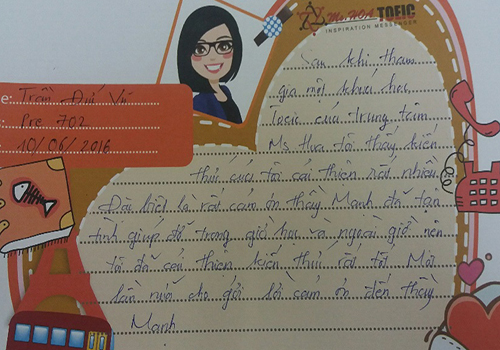 Ms HOA TOEIC
INSPIRATION MESSENGER
e: Trần Đức Vũ
Pre 702
10/06/2016
Sau khi tham
gia một khoá học
Toeic của trung tâm
Ms Hoa tôi thấy kiến
thức của tôi cải thiện rất nhiều
Đặc biệt là rất cảm ơn thầy Mạnh đã tận
tình giúp đỡ trong giờ học và ngoài giờ nên
tôi đã cải thiện kiến thức rất tốt. Một
lần nữa cho gởi lời cảm ơn đến thầy
Mạnh